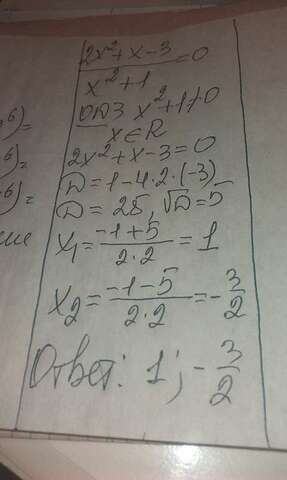 (2x²+x-3)/(x²+1)=0
ОДЗ x²+1≠0
x∈R
2x²+x-3=0
D=1-4·2·(-3)
D=25, √D=5
x₁=(-1+5)/(2·2)=1
x₂=(-1-5)/(2·2)=-3/2
Ответ: 1; -3/2
6)=
6)=
6)=